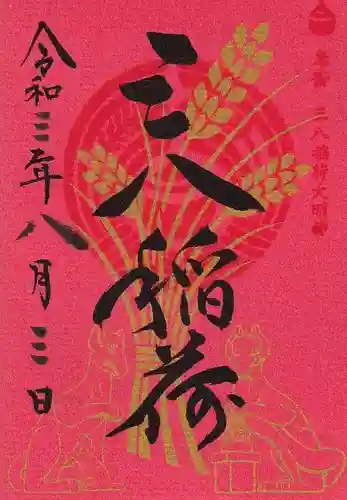 奉拝 三八稲荷大明神
三八稲荷
令和三年八月三日